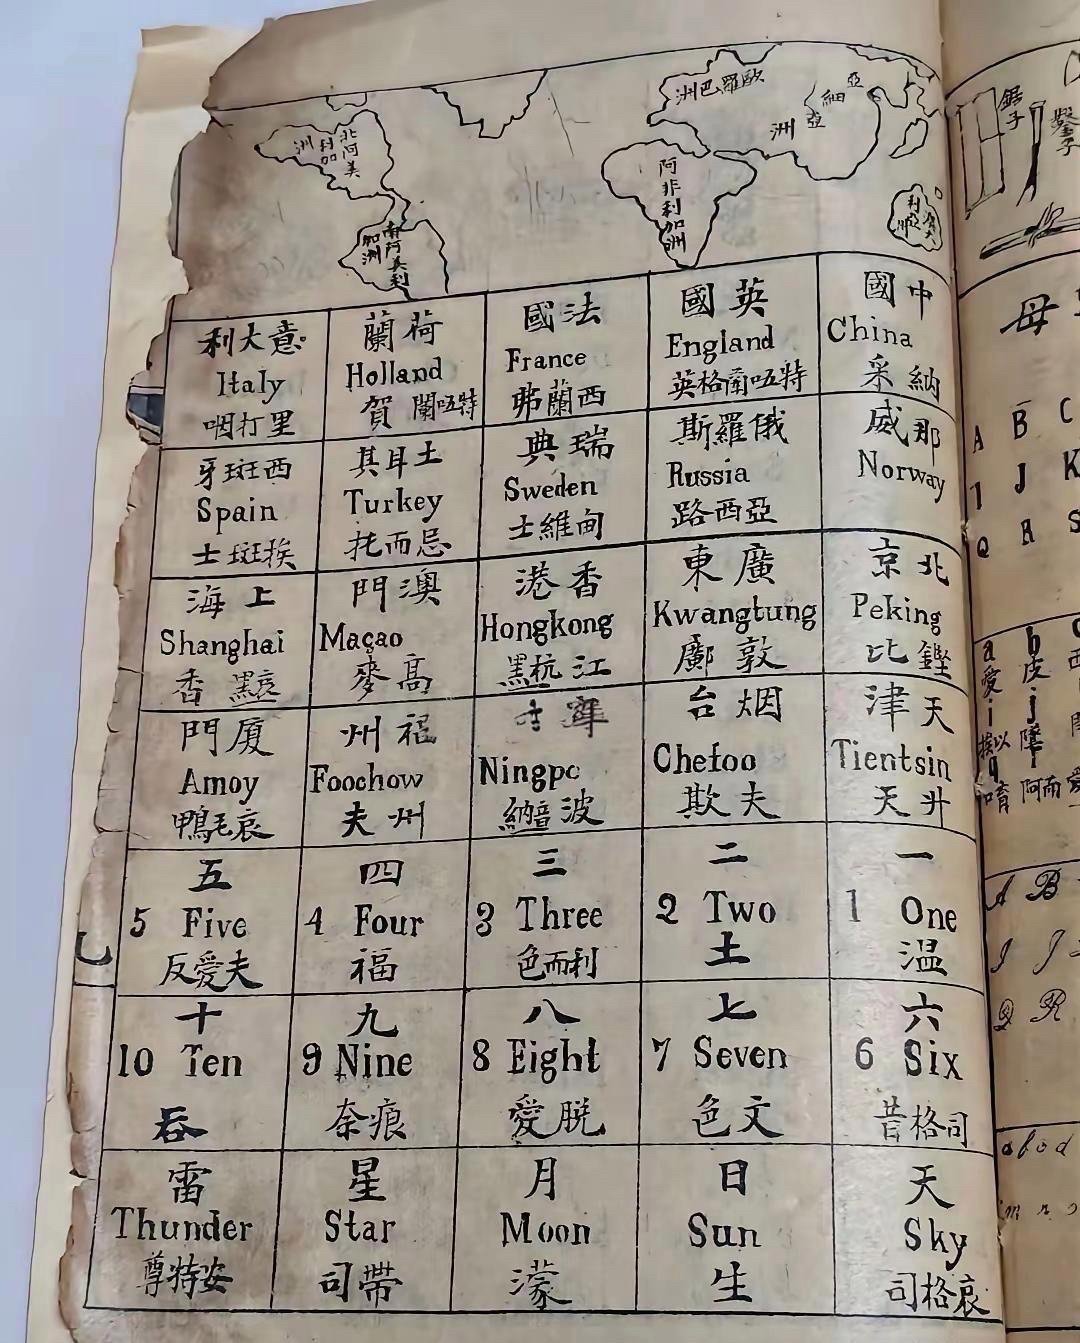 北阿美
利加
洲
南阿美利
加洲
歐羅巴洲
亞
細
亞
洲
阿非利加洲
利亞
洲
中國
China
采納
英國
England
英格蘭咓特
法國
France
弗蘭西
荷蘭
Holland
賀闌咓特
意大利
Italy
咽打里
那威
Norway
俄羅斯
Russia
路西亞
瑞典
Sweden
士維甸
土耳其
Turkey
托而忌
西班牙
Spain
士班挨
北京
Peking
比鏗
廣東
Kwangtung
鄺敦
香港
Hongkong
黑杭江
澳門
Maçao
麥高
上海
Shanghai
香黑哀
天津
Tientsin
天升
烟台
Chefoo
欺夫
寧
Ningpo
納音波
福州
Foochow
夫州
廈門
Amoy
鴨毛哀
一
1 One
温
二
2 Two
土
三
3 Three
色而利
四
4 Four
福
五
5 Five
反愛夫
六
6 Six
昔格司
七
7 Seven
色文
八
8 Eight
愛脫
九
9 Nine
奈痕
十
10 Ten
吞
天
Sky
司格哀
日
Sun
生
月
Moon
濛
星
Star
司帶
雷
Thunder
尊特安
鋸子
鑿子
母
A B C
J K
Q R S
a b
愛 皮 西
i j
挨以
q r
阿而
A B
I J
Q R
a b c d
m n o